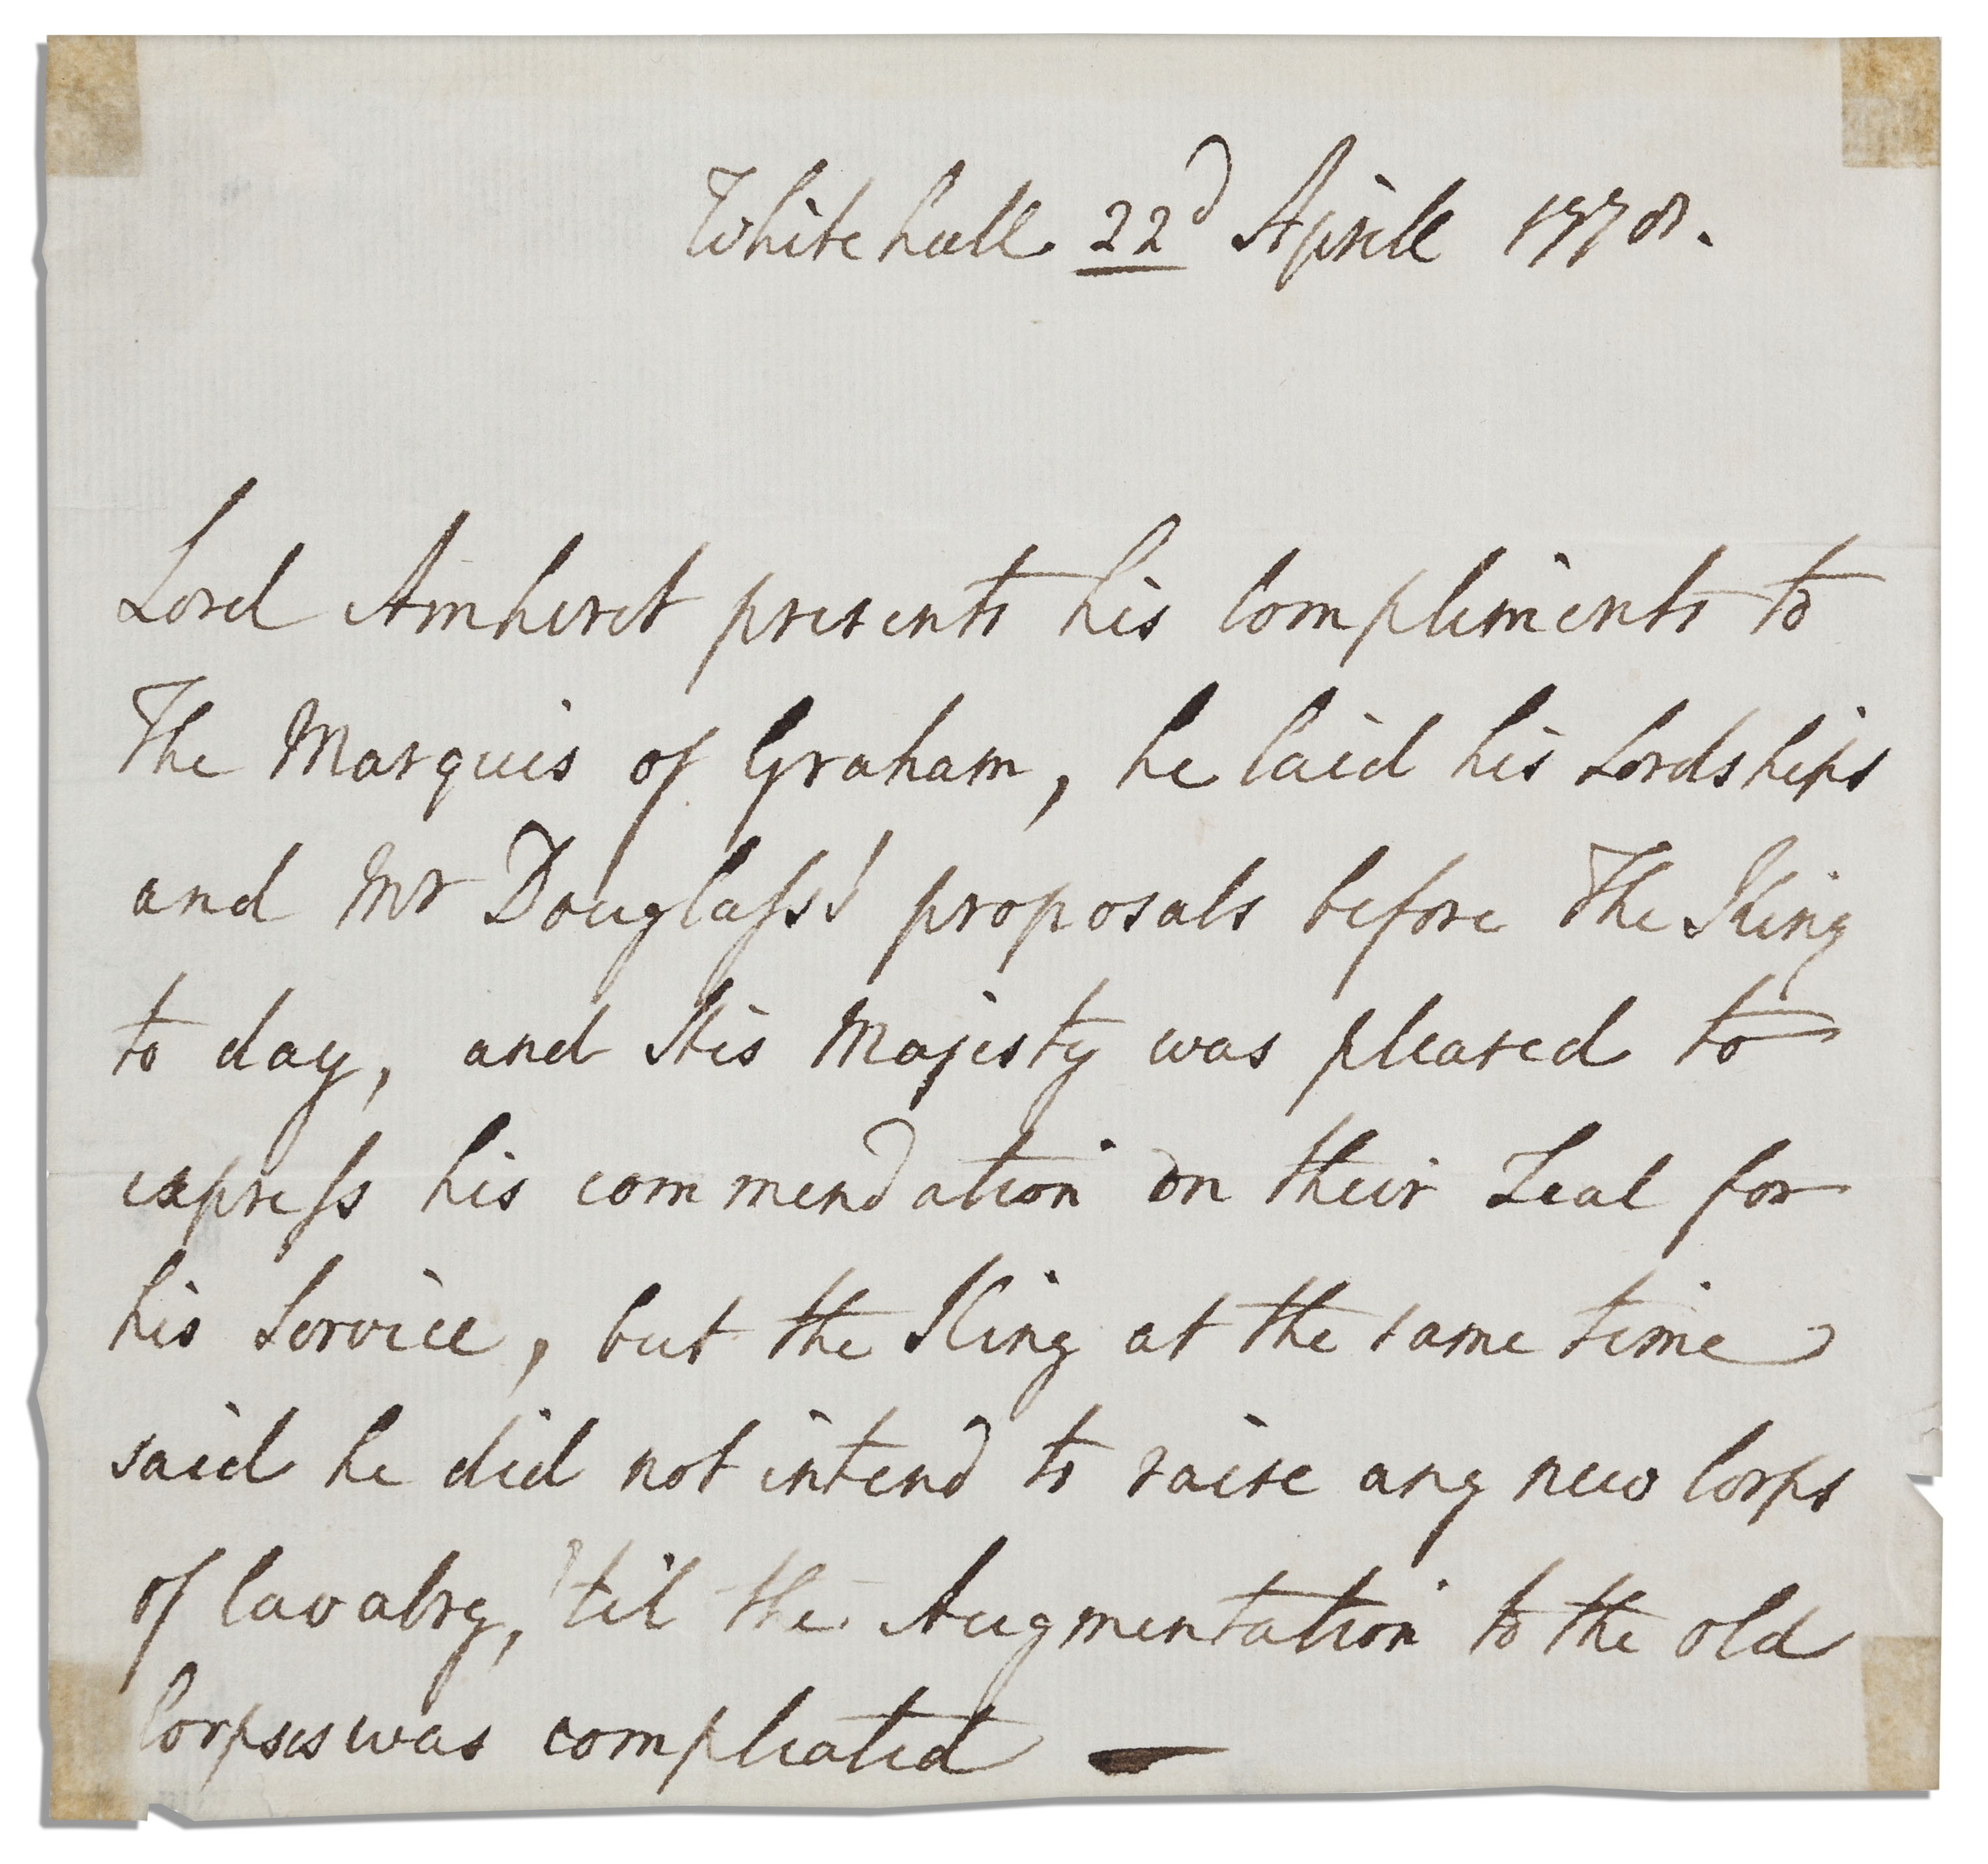 Whitehall 22d Aprill 1778.
Lord Amherst presents his Compliments to
The Marquis of Graham, he laid his Lordships
and Mr Douglass's proposals before The King
to day, and His Majesty was pleased to
express his commendation on their Zeal for
his Service, but the King at the same time
said he did not intend to raise any new Corps
of Cavalry, 'til the Augmentation to the old
Corpses was compleated —